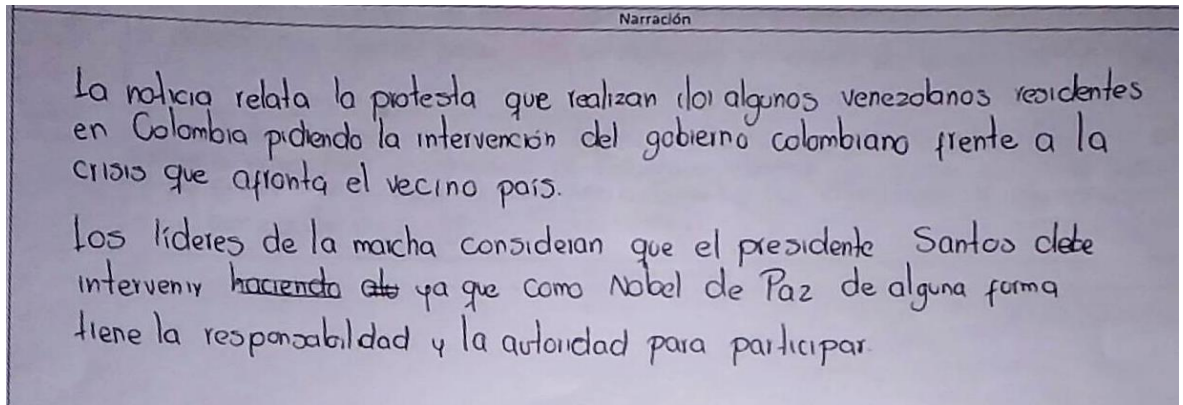 Narración
La noticia relata la protesta que realizan algunos venezolanos residentes
en Colombia pidiendo la intervención del gobierno colombiano frente a la
crisis que afronta el vecino país.
Los líderes de la marcha consideran que el presidente Santos debe
intervenir haciendo ya que como Nobel de Paz de alguna forma
tiene la responsabildad y la autoridad para participar.